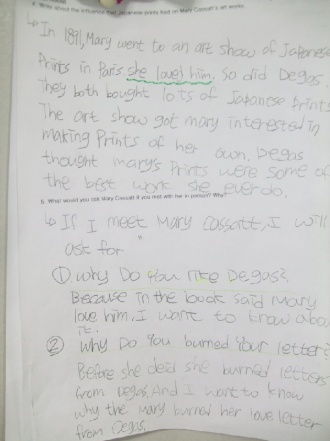 4. Write about the influence that Japanese prints had on Mary Cassatt's art works.
↳ In 1891, Mary went to an art show of Japanese
Prints in Paris she loved him. So did Degas
They both bought lots of Japanese Prints
The art show got mary interested in
making Prints of her own. Degas
thought marys Prints were some of
the best work she ever do.
5. What would you ask Mary Cassatt if you met with her in person? Why?
↳ If I meet Mary Cassatt, I will
ask for
① why Do You like Degas?
Because In the book said Mary
love him, I want to know about
it.
② why Do You burned Your letter?
Before she deid she burned letters
from Degas, And I want to know
why the Mary burned her love letter
from Degas.